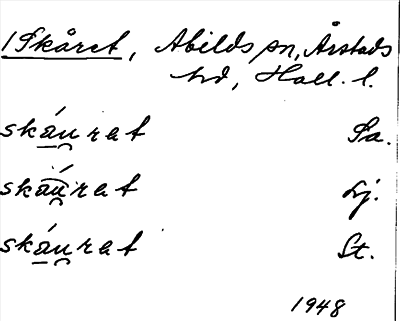 1 Skåret, Abilds sn, Årstads
hd, Hall. l.
skáu̯rat Sa.
skáu̯rat Lj.
skáu̯rat St.
1948